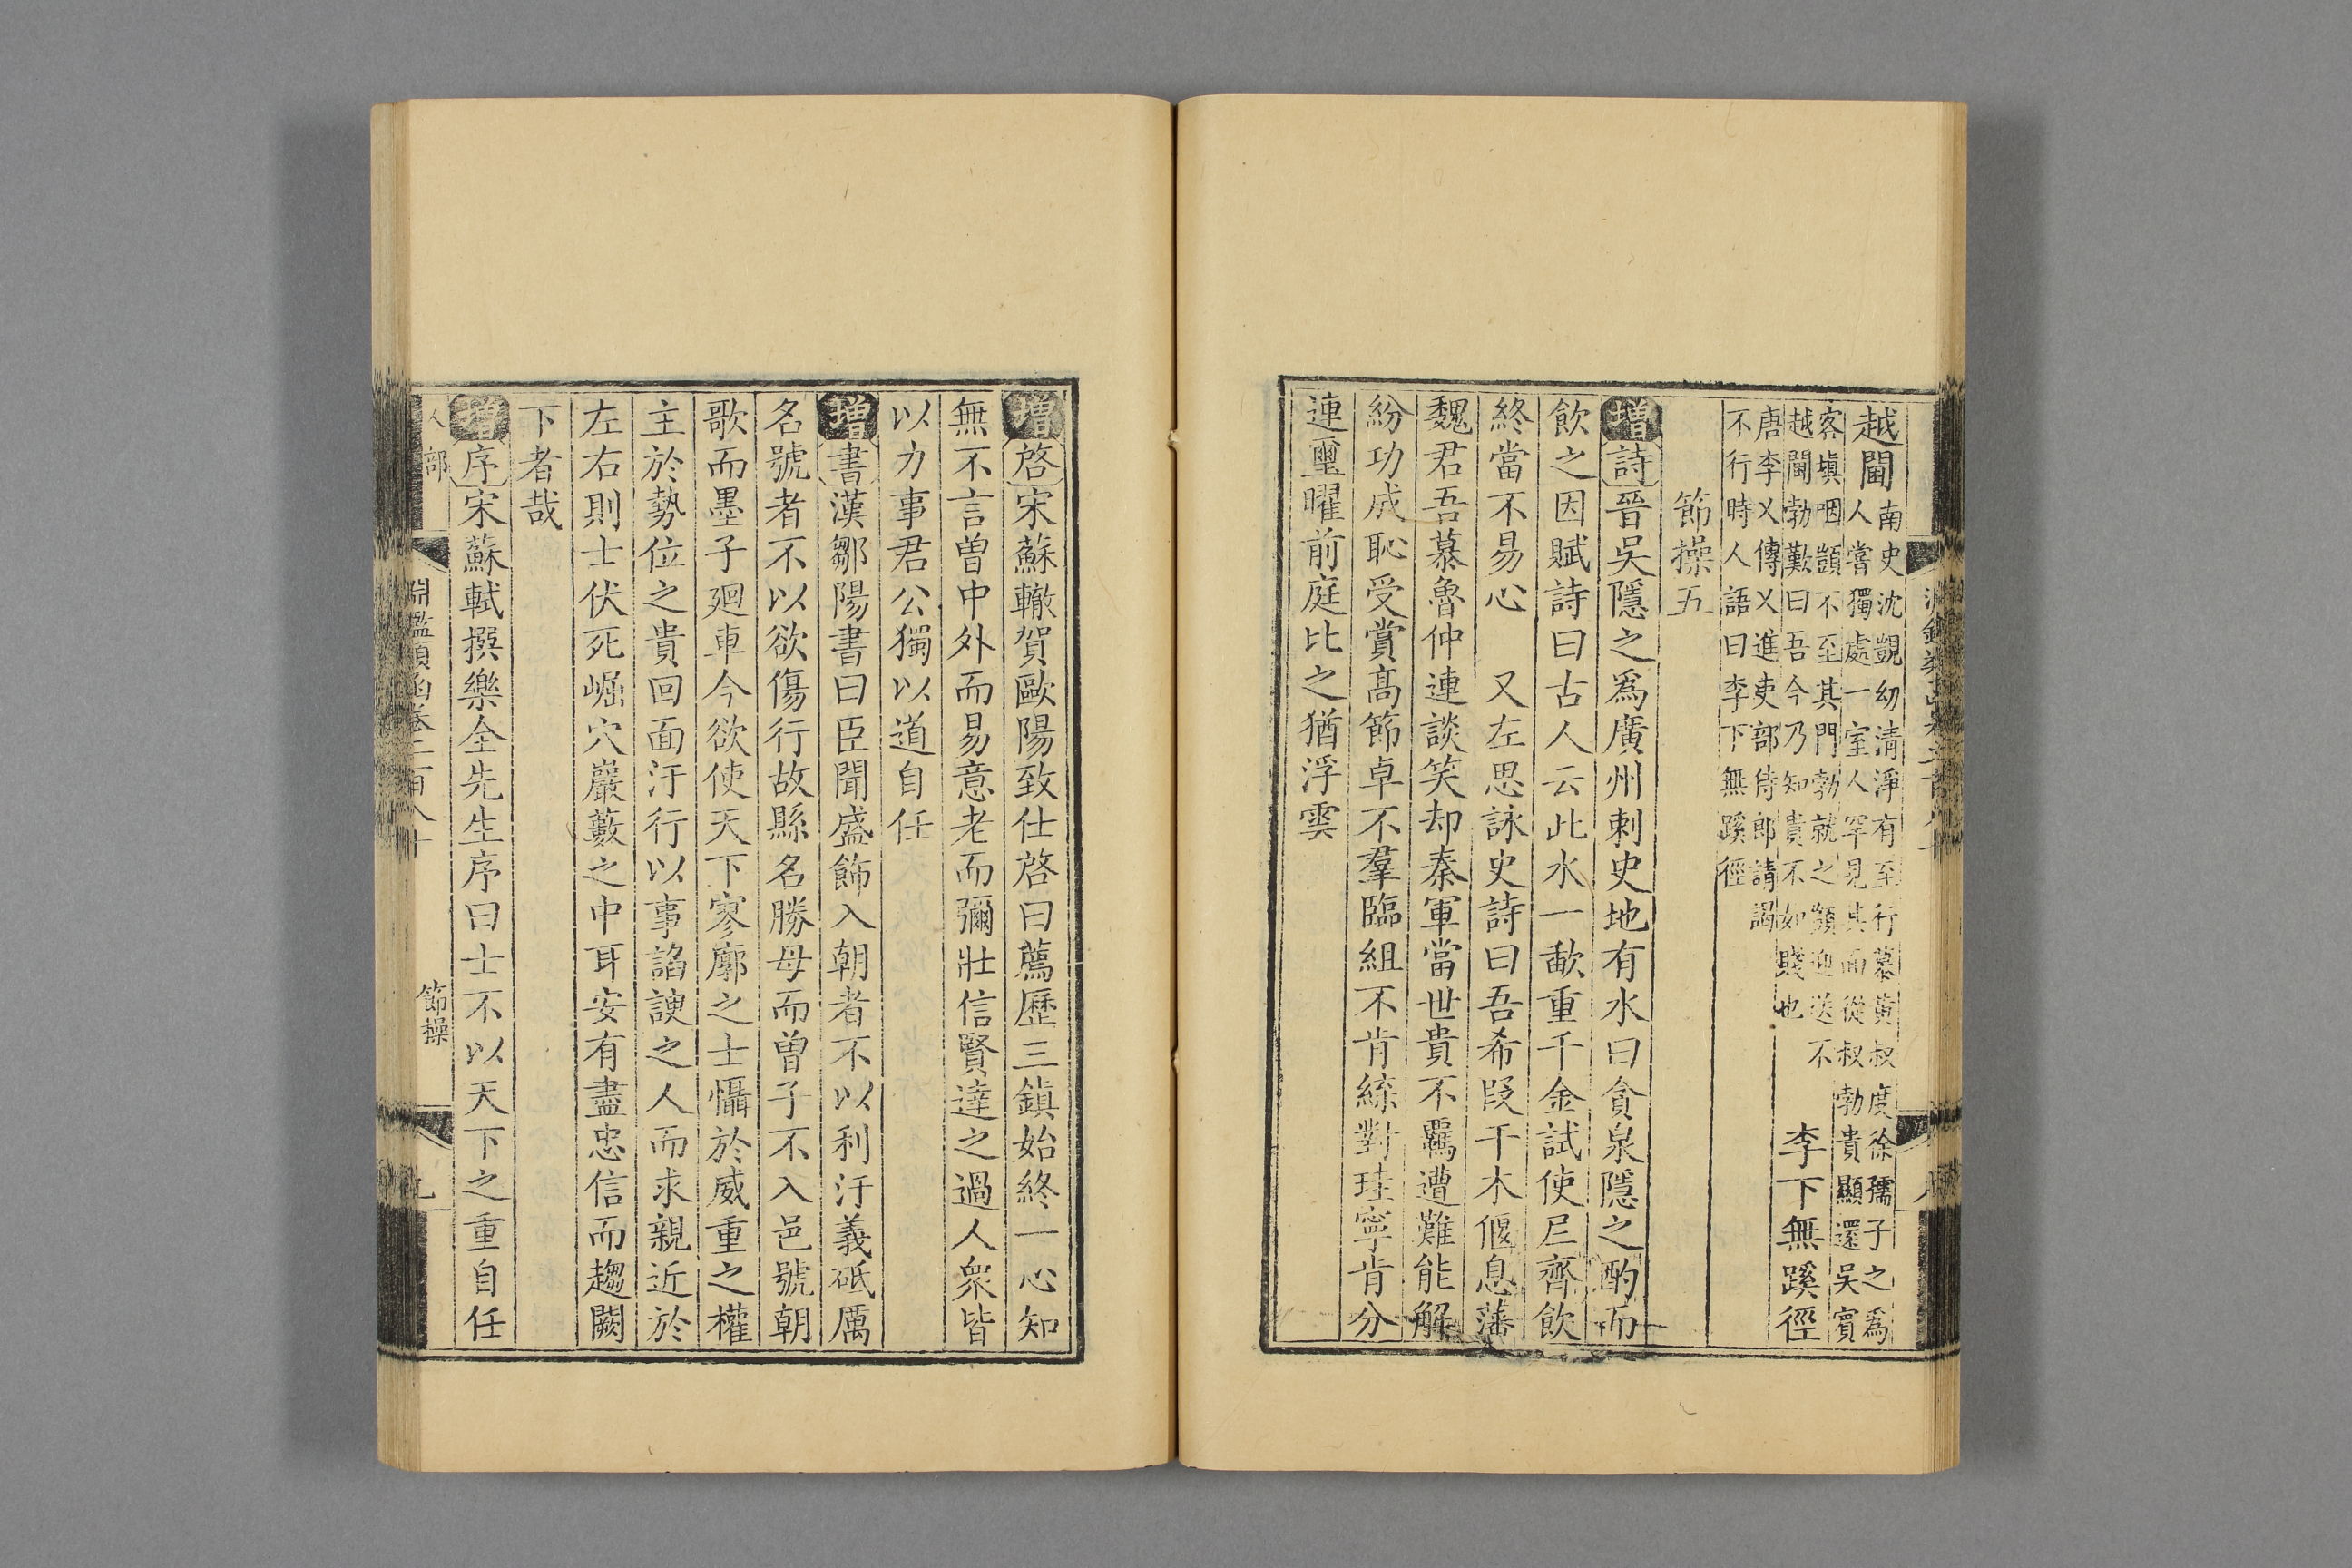 越閫南史沈顗幼清淨有至行慕黃叔度徐孺子之爲
人嘗獨處一室人罕見其面從叔勃貴顯還吳賓
客塡咽顗不至其門勃就之顗迎送不
越閫勃歎曰吾今乃知貴不如賤也
李下無蹊徑
唐李乂傳乂進吏部侍郎請謁
不行時人語曰李下無蹊徑
節操五
增詩晉吳隱之爲廣州刺史地有水曰貪泉隱之酌而
飲之因賦詩曰古人云此水一歃重千金試使夷齊飲
終當不易心 又左思詠史詩曰吾希段干木偃息藩
魏君吾慕魯仲連談笑却秦軍當世貴不羈遭難能解
紛功成恥受賞高節卓不羣臨組不肯緤對珪寧肯分
連璽曜前庭比之猶浮雲
增啓宋蘇轍賀歐陽致仕啓曰薦歷三鎮始終一心知
無不言曾中外而易意老而彌壯信賢達之過人衆皆
以力事君公獨以道自任
增書漢鄒陽書曰臣聞盛飾入朝者不以利汙義砥厲
名號者不以欲傷行故縣名勝母而曾子不入邑號朝
歌而墨子廻車今欲使天下寥廓之士懾於威重之權
主於勢位之貴回面汙行以事諂諛之人而求親近於
左右則士伏死崛穴巖藪之中耳安有盡忠信而趨闕
下者哉
增序宋蘇軾撰樂全先生序曰士不以天下之重自任
人部
淵鑑類函卷二百八十
節操
九